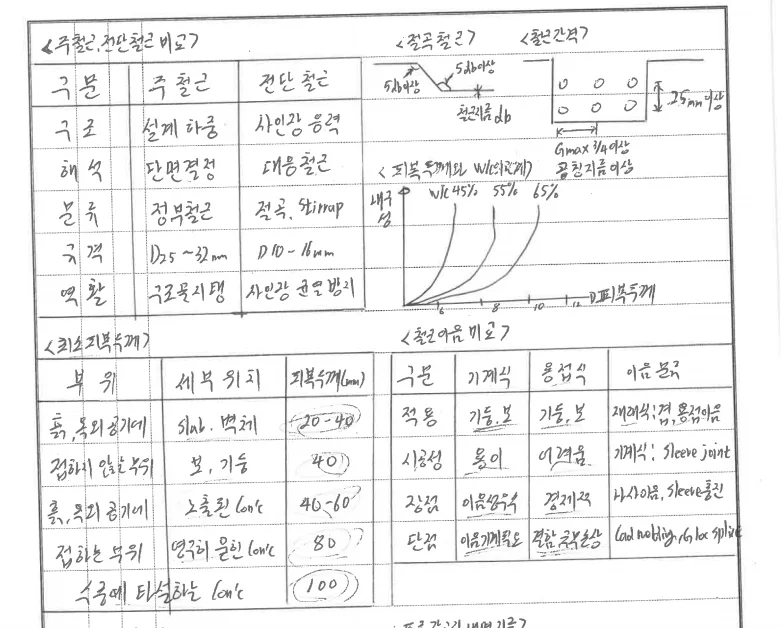 <주철근, 전단철근 비교>
구분 주철근 전단철근
구조 설계하중 사인장응력
해석 단면결정 대응철근
분류 정부철근 절곡, Stirrup
규격 D25~32mm D10-16mm
역활 구조물지탱 사인장 균열방지
<절곡철근>
5db이상 5db이상
철근지름 db
<철근간격>
25mm이상
Gmax 3/4이상
공칭지름이상
<피복두께와 W/C의관계>
내구성
W/C 45% 55% 65%
6 8 10 12 D피복두께
<최소피복두께>
부위 세부위치 피복두께(mm)
흙, 옥외공기에 slab. 벽체 20-40
접하지 않는부위 보, 기둥 40
흙, 옥외공기에 노출된 Con'c 40-60
접하는 부위 영구히 묻힌 Con'c 80
수중에 타설하는 Con'c 100
<철근이음비교>
구분 기계식 용접식 이음분류
적용 기둥, 보 기둥, 보 재래식: 겹, 용접이음
시공성 용이 어려움 기계식: Sleeve joint
장점 이음성우수 경제적 나사이음, Sleeve충진
단점 이음기계필요 결함 국부손상 Cad welding, G-loc splice